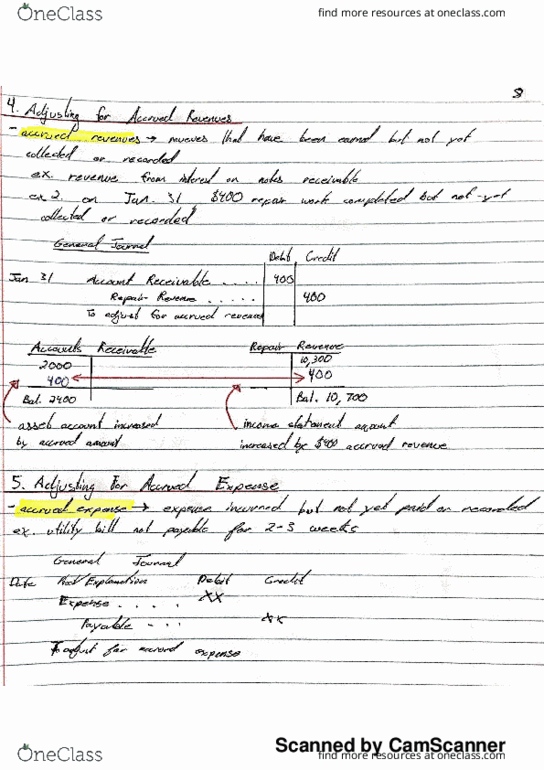 OneClass
find more resources at oneclass.com
8
4. Adjusting for Accrued Revenues
- accrued revenues → reveues that have been earned but not yet
collected or recorded
ex. revenue from interest on notes receivable
ex 2. on Jan. 31 $400 repair work completed but not yet
collected or recorded
General Journal
Debit Credit
Jan 31 Account Receivable .... 400
Repair Revenue ..... 400
To adjust for accrued revenue
Accounts Receivable Repair Revenue
2000 10,300
400 400
Bal. 2400 Bal. 10,700
asset account increased income statement account
by accrued amount increased by $400 accrued revenue
5. Adjusting For Accrued Expense
- accrued expense → expense incurred but not yet paid or recorded
ex. utility bill not payable for 2-3 weeks
General Journal
Date Explanation Debit Credit
Expense .... XX
Payable .... XX
To adjust for accrued expense
Scanned by CamScanner
OneClass
find more resources at oneclass.com